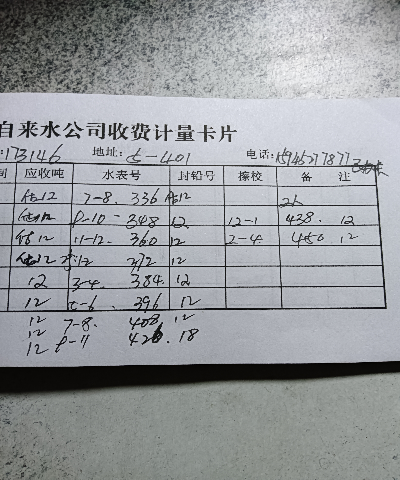 自来水公司收费计量卡片
:173146 地址: 5-401 电话: 15945217877
间 应收吨 水表号 封铅号 擦校 备 注
估12 7-8. 336 估12 21
估12 8-10- 348 12 12-1 438. 12
估12 11-12. 360 12 2-4. 450 12
估12 372 12
12 3-4 384. 12
12 5-6. 396 12
12 7-8. 408 12
12
12 8-11 426. 18